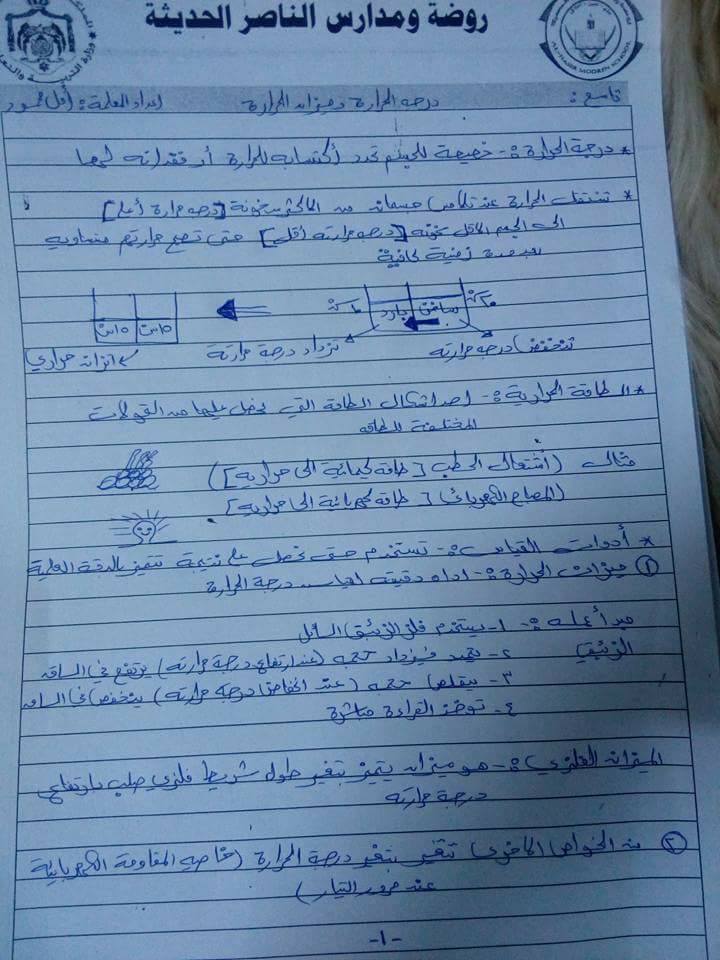 روضة ومدارس الناصر الحديثة
AL-NASER MODREN SCHOOL
تاسع : درجة الحرارة وميزان الحرارة اعداد المعلمة : أمل محمود
* درجة الحرارة :- خاصية للجسم تحدد اكتسابه للحرارة أو فقدانه لها
* تنتقل الحرارة عند تلامس جسمان من الاكثر سخونة [درجة حرارة أعلى]
الى الجسم الاقل سخونه [درجة حرارته أقل] حتى تصبح حرارتهم متساويه
بعد مدة زمنية كافية
ساخن بارد
تنخفض درجة حرارته تزداد درجة حرارته اتزان حراري
* الطاقة الحرارية :- احد اشكال الطاقة التي نحصل عليها من التحولات
المختلفة للطاقه
مثال (اشتعال الحطب [طاقة كيميائية الى حرارية])
(المصباح الكهربائي [طاقة كهربائية الى حرارية]
* أدوات القياس :- تستخدم حتى نحصل على نتيجة تتميز بالدقة العلمية
① ميزان الحرارة :- اداة دقيقه لقياس درجة الحرارة
مبدأ عمله :- ١- يستخدم فلز الزئبق السائل
الزئبقي ٢- يتمدد فيزداد حجمه (عند ارتفاع درجة حرارته) يرتفع في الساق
٣- يتقلص حجمه (عند انخفاض درجة حرارته) ينخفض في الساق
٤- تؤخذ القراءة مباشرة
الميزان الفلزي :- هو ميزان يتميز بتغير طول شريط فلزي صلب بارتفاع
درجة حرارته
② من الخواص الاخرى تتغير بتغير درجة الحرارة (خاصيه المقاومة الكهربائية
عند مرور التيار)
-١-